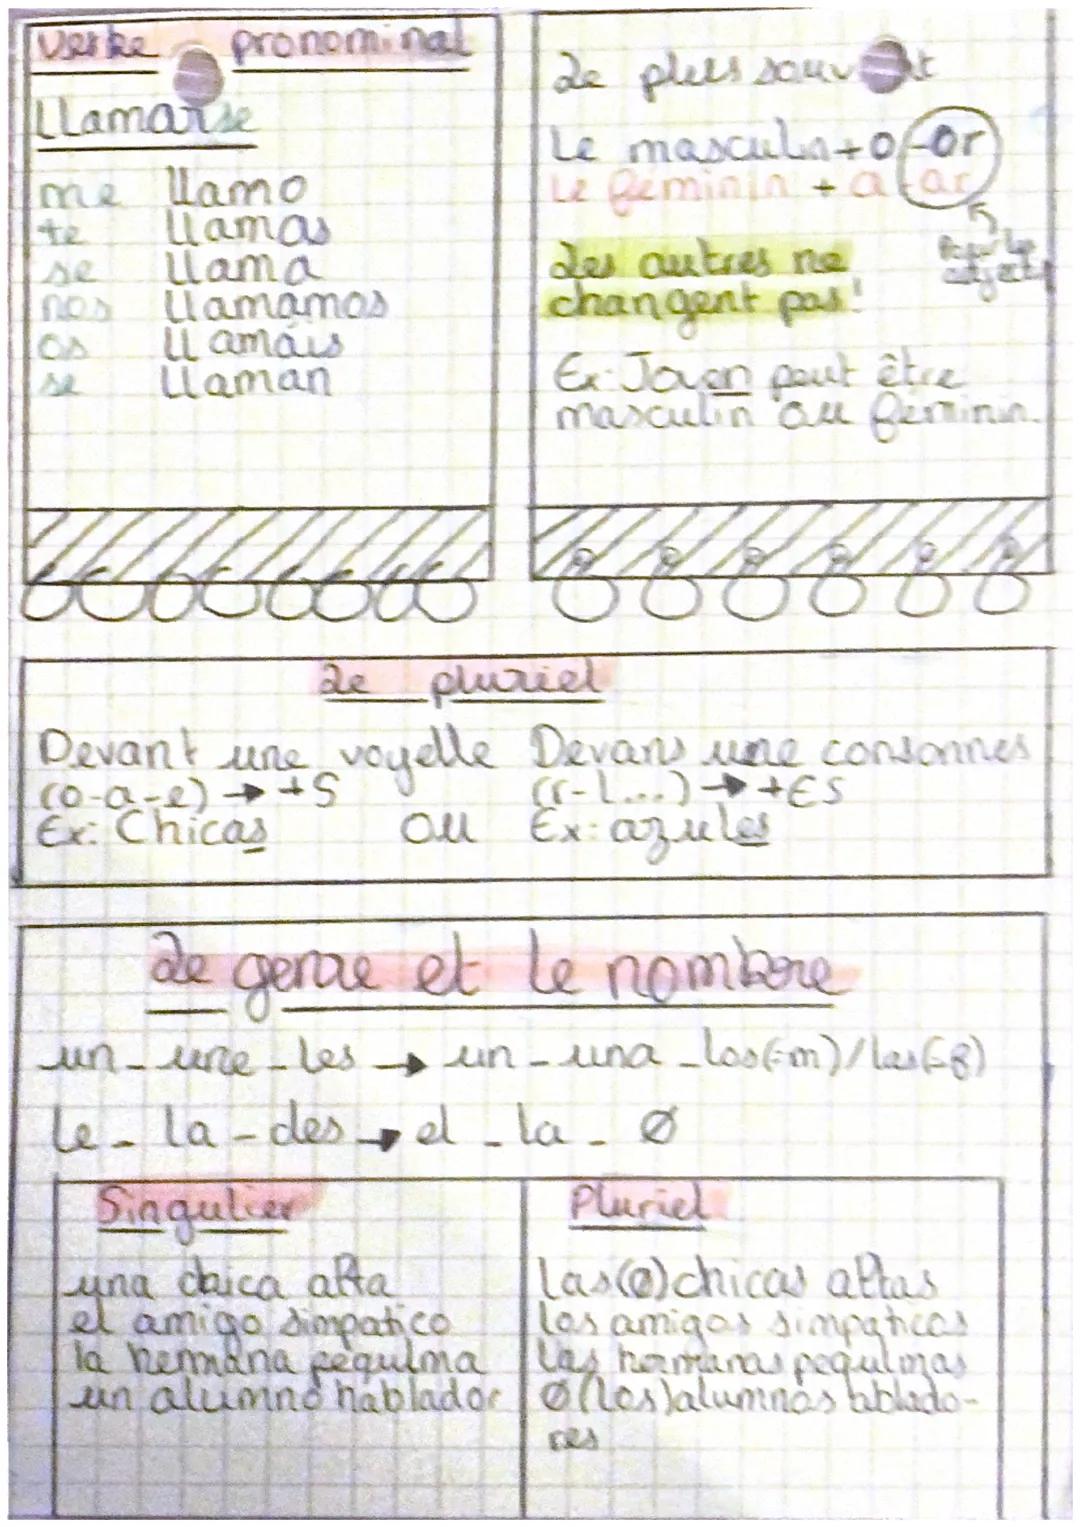 Verbe pronominal
Llamarse
me llamo
te llamas
se llama
nos llamamos
os llamáis
se llaman
Le plus souvent
Le masculin + o (-or)
Le féminin + a (-ar)
Pour les adject
Les autres ne
changent pas!
Ex: Joven peut être
masculin ou féminin.
Le pluriel
Devant une voyelle
(o-a-e) → +S
Ex: Chicas
ou
Devans une consonnes
(r-l...) → +ES
Ex: azules
Le genre et le nombre
un - une - les → un - una - los(=m)/las(=f)
le - la - des → el - la - Ø
Singulier
una chica alta
el amigo simpatico
la hermana pequinna
un alumno hablador
Pluriel
Las(Ø)chicas altas
los amigos simpaticos
las hermanas pequinnas
Ø(los)alumnos ablado-
res